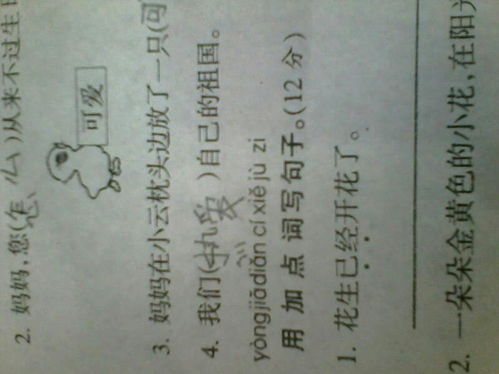 2. 妈妈,您(怎么)从来不过生日
可爱
3. 妈妈在小云枕头边放了一只(可
4. 我们(执爱)自己的祖国。
yòngjiādiǎn cí xiě jù zi
用加点词写句子。(12分)
1. 花生已经开花了。
2. 一朵朵金黄色的小花,在阳光